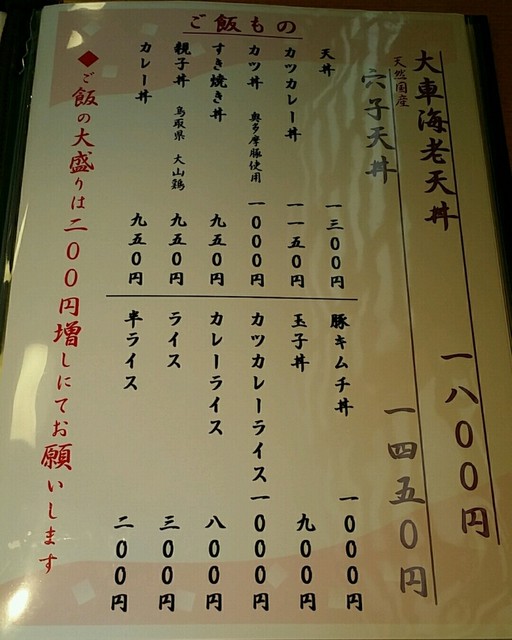 ご飯もの
大車海老天丼 一八〇〇円
天然国産
穴子天丼 一四五〇円
天丼 一三〇〇円
カツカレー丼 一一五〇円
カツ丼 奥多摩豚使用 一〇〇〇円
すき焼き丼 九五〇円
親子丼 鳥取県 大山鶏 九五〇円
カレー丼 九五〇円
豚キムチ丼 一〇〇〇円
玉子丼 九〇〇円
カツカレーライス 一〇〇〇円
カレーライス 八〇〇円
ライス 三〇〇円
半ライス 二〇〇円
◆ご飯の大盛りは二〇〇円増しにてお願いします